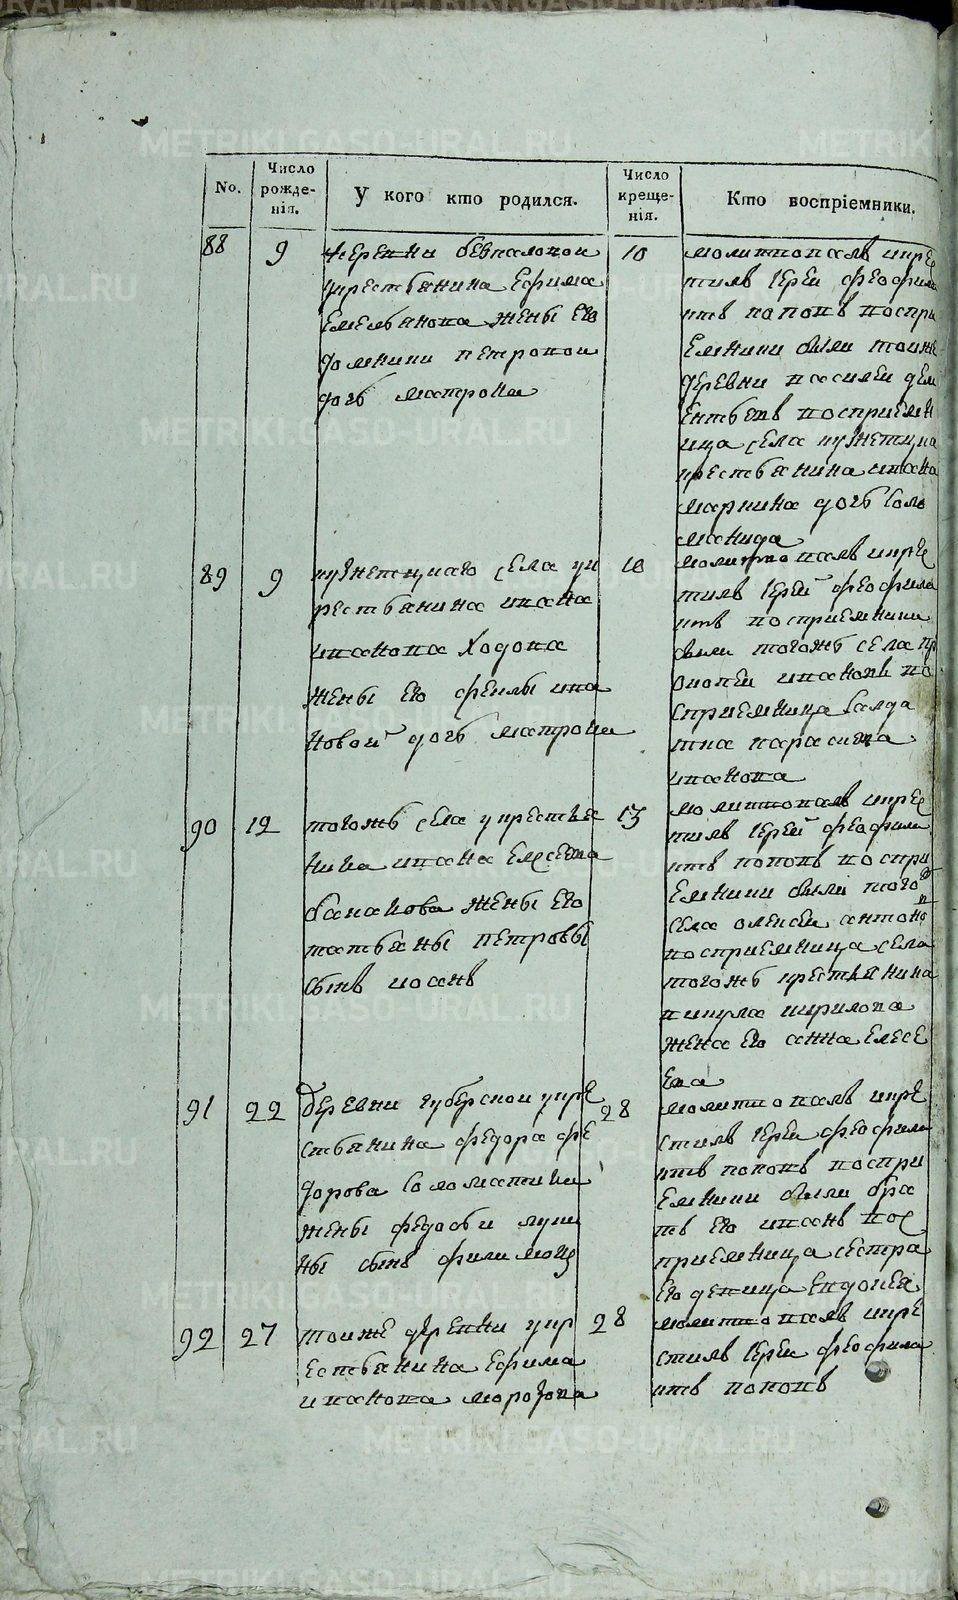 No.
Число рожде-нія.
У кого кто родился.
Число креще-нія.
Кто воспріемники.
88
9
деревни
укрестьянина Ефима
Емельянова жены его
домники петровои
дочь матрона
10
молитвовалъ икре
тилъ Iереи феофила
ктъ поповъ воспри
Емники были тоиже
деревни василеи дем
ентьевъ восприемн
ица села кузнецка
крестьянина ивана
маркина дочь соло
манида
89
9
кузнецкаго села ук
рестьянина ивана
иванова Ходова
жены его феклы ива
новой дочь матрона
10
молитвовалъ икре
тилъ Iерей феофила
ктъ восприемники
были тогожъ села пр
окопеи ивановъ во
сприемница салда
тка парасква
иванова
90
12
тогожъ села укрестья
нина ивана Елесева
банакова жены его
татьяны петровы
сынъ иоанъ
13
молитвовалъ икре
тилъ Iерей феофила
ктъ поповъ воспри
Емники были того
села алексеи антоно
восприемница села
тогожъ крестьянина
викула кирилова
жена его анна Елесе
Ева
91
22
деревни губерскои укре
стьянина федора фе
дорова соломатина
жены федосьи луки
ны сынъ филимонъ
28
молитвовалъ икре
стилъ Iереи феофила
ктъ поповъ воспри
Емники были бра
тъ его иванъ вос
приемница сестра
Его девица Евдокея
92
27
тоиже деревни укр
естьянина Ефима
иванова морозова
28
молитвовалъ икре
стилъ Iереи феофила
ктъ поповъ
METRIKI.GASO-URAL.RU